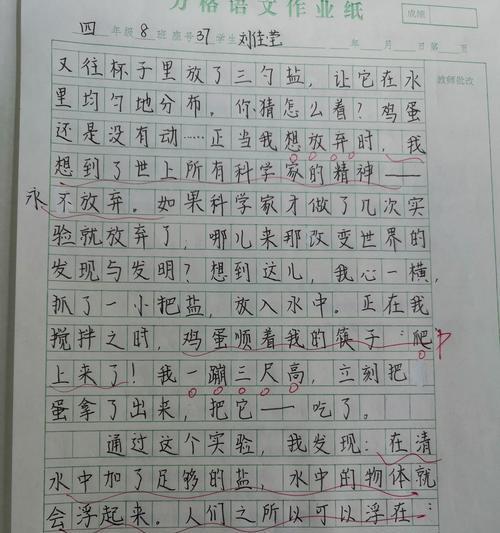 方格语文作业纸
成绩
四年级8班座号37学生刘佳莹 年 月 日第 页
教师批改
又往杯子里放了三勺盐，让它在水
里均匀地分布。你猜怎么着？鸡蛋
还是没有动……正当我想放弃时，我
想到了世上所有科学家的精神——
永不放弃。如果科学家才做了几次实
验就放弃了，哪儿来那改变世界的
发现与发明？想到这儿，我心一横，
抓了一小把盐，放入水中。正在我
搅拌之时，鸡蛋顺着我的筷子“爬”
上来了！我一蹦三尺高，立刻把
蛋拿了出来，把它——吃了。
通过这个实验，我发现：在清
水中加了足够的盐，水中的物体就
会浮起来。人们之所以可以浮在